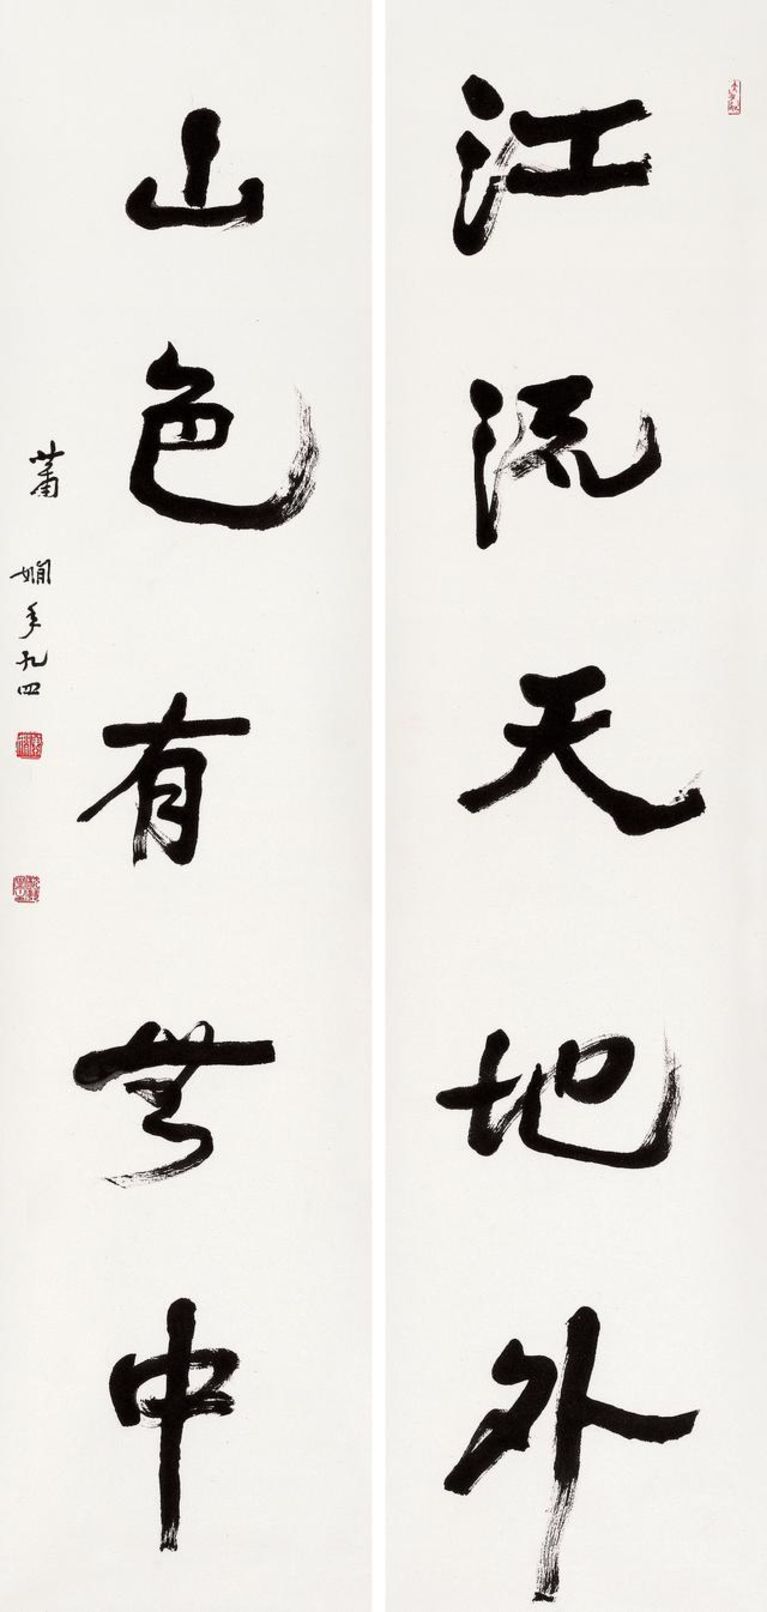 江流天地外
山色有無中
蕭嫻年九四